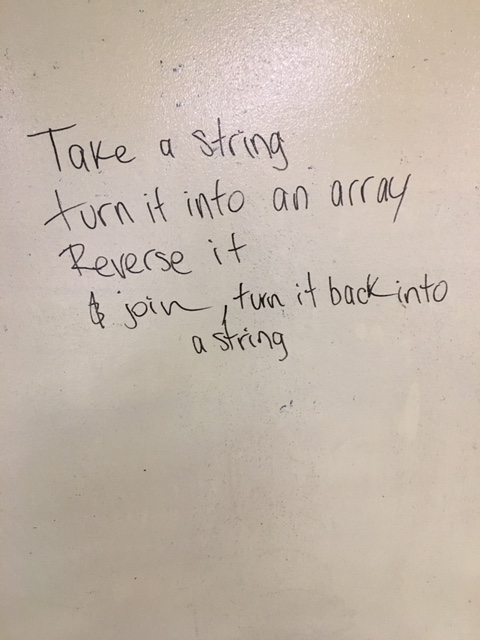 Take a string
turn it into an array
Reverse it
& join, turn it back into
a string